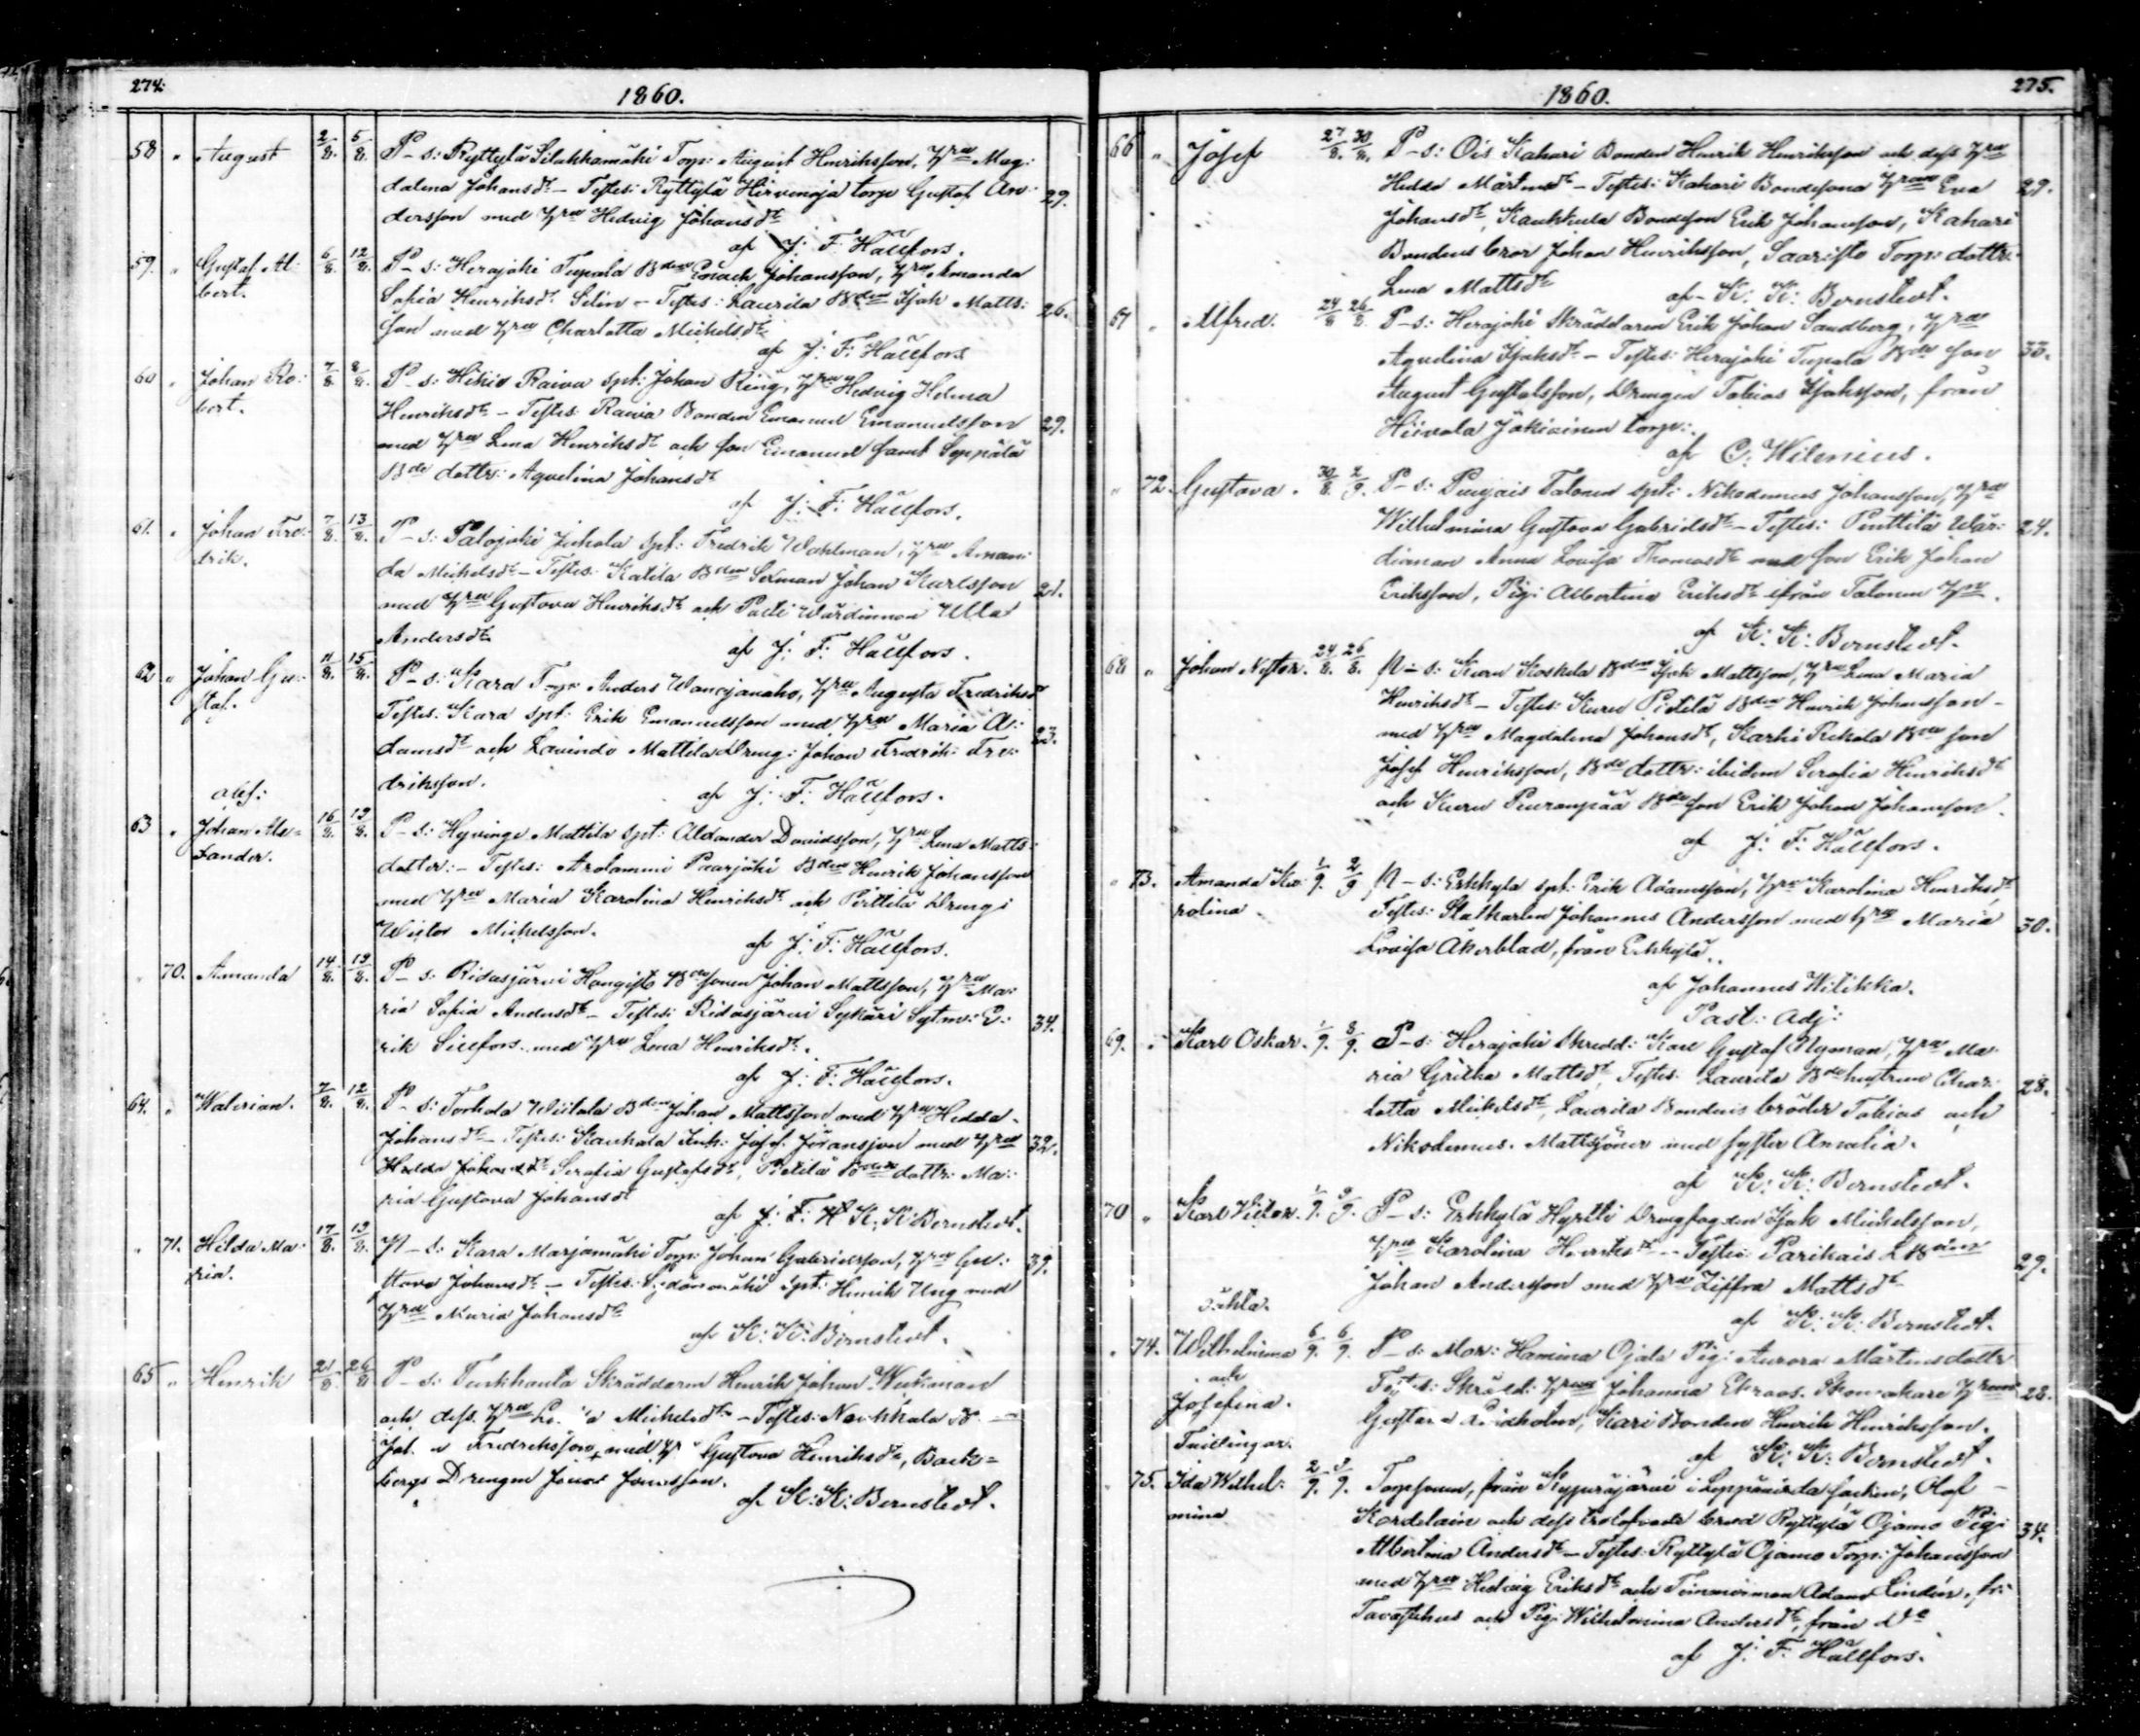 274.
1860.
58 " August 2/8. 5/8. P-s: Ryttylä Silakkamäki Torp: August Henriksson, Hru Mag:
dalena Johansdr – Testes: Ryttylä Hirvenoja torp Gustaf An: 29.
dersson med Hru Hedvig Johansdr
af J: F: Hällfors.
59. " Gustaf Al: 6/8. 12/8. P-s: Herajoki Tupala Bden Enoch Johansson, Hru Amanda
bert. Sofia Henriksdr Selin – Testes: Laurila Bden Isak Matts: 26.
son med Hru Charlotta Michelsdr
af J: F: Hällfors
60 " Johan Ro: 7/8. 8/8. P-s: Hikiä Raiva Spt: Johan Ring, Hru Hedvig Helena
bert. Henriksdr – Testes Raiva Bonden Emanuel Emanuelsson 29.
med Hru Lena Henriksdr och son Emanuel samt Seppälä
Bde dottr: Aqvelina Johansdr
af J: F: Hällfors.
61. " Johan Fre: 7/8. 13/8. P-s: Palojoki Jukola Spt: Fredrik Wahlman, Hru Aman:
drik. da Michelsdr – Testes: Katila Bden Sexman Johan Karlsson 21.
med Hru Gustava Henriksdr och Palti Wärdinnan Ulla
Andersdr
af J: F: Hällfors.
62 " Johan Gu: 11/8. 15/8. P-s: Kara Torp Anders Wanajanaho, Hru Augusta Fredriksdr
staf. Testes. Kara Spt: Erik Emanuelsson med Hru Maria A: 23.
damsdr och Lavinda Mattila Dreng: Johan Fredrik: Fre:
driksson.
af J: F: Hällfors.
63 " Johan Ale= 16/8. 19/8. P-s: Hyvinge Mattila Spt: Alexander Davidsson, Hru Lena Matts:
xander. dotter: – Testes: Arolammi Paarjoki Bden Henrik Johansson
med Hru Maria Karolina Henriksdr och Pirttilä Dreng:
Wictor Michelsson.
af J: F: Hällfors.
" 70. Amanda 14/8. 19/8. P-s: Ridasjärvi Hongisto Bdesonen Johan Mattsson, Hru Ma:
ria Sofia Andersdr – Testes: Ridasjärvi Sykäri Sytm: E: 34.
rik Sillfors med Hru Lena Henriksdr.
af J: F: Hällfors.
64. " Walerian. 7/8. 12/8. P-s: Torhola Wiitala Bden Johan Mattsson med Hru Hedda
Johansdr – Testes: Kaukola Inh: Josef Göransson med Hru 32.
Hedda Johansdr Serafia Gustafsdr, Pietilä Bondens dottr: Ma:
ria Gustava Johansdr
af J: F: H K: K: Bernstedt.
" 71. Hilda Ma: 17/8. 19/8. P-s: Kara Marjamäki Torp: Johan Gabrielsson, Hru Gu: 39.
ria. stava Johansdr – Testes: Spt: Henrik Ung med
Hru Maria Johansdr
af K: K: Bernstedt.
65 " Henrik 21/8. 26/8. P-s: Tunkhauta Skräddaren Henrik Johan Weckman
och dess Hru Michelsdr – Testes: Naukkala
Fredriksson med Hru Gustava Henriksdr, Back=
bergs Drengen
af K: K: Bernstedt.
1860.
275.
66 " Josef 27/8. 30/8. P-s: Ois Kahari Bonden Henrik Henriksson och dess Hru
Hedda Mårtensdr – Testes: Kahari Bondesona Hrun Eva 29.
Johansdr, Kaukkula Bondeson Erik Johansson, Kahari
Bondens bror Johan Henriksson, Saaristo Torp: dottr:
Lena Mattsdr
af K: K: Bernstedt.
67 " Alfred. 24/8 26/8. P-s: Herajoki Skräddaren Erik Johan Sandberg, Hru
Aqvelina Isaksdr – Testes: Herajoki Tupala Bde son 33.
August Gustafsson, Drengen Tobias Isaksson, från
Hiivola Jokiainen torp:
af C: Wilenius.
" 72. Gustava. 30/8. 2/9. P-s: Puujais Talonen Spt: Nikodemus Johansson, Hru
Wilhelmina Gustava Gabrielsdr – Testes: Penttilä Wär: 24.
dinnan Anna Lovisa Thomasdr med son Erik Johan
Eriksson, Pig: Albertina Eriksdr ifrån Talonen
af K: K: Bernstedt.
68 " Johan Nestor. 24/8. 26/8. P-s: Kuru Koskela Bden Isak Mattsson, Hru Lena Maria
Henriksdr – Testes: Kuru Pietilä Bden Henrik Johansson
med Hru Magdalena Johansdr, Karhi Rekola Bde son
Josef Henriksson, Bde dottr: ibidem Serafia Henriksdr
och Kuru Peuranpää Bde son Erik Johan Johansson.
af J: F: Hällfors.
" 73. Amanda Ka: 1/9. 2/9 P-s: Erkkylä Spt: Erik Adamsson, Hru Karolina Henriksdr
rolina. Testes: Statkarlen Johannes Andersson med Hru Maria 30.
Lovisa Åkerblad, från Erkkylä.
af Johannes Wilikka.
Past: Adj:
69. " Karl Oskar. 1/9. 8/9. P-s: Herajoki Skredd: Karl Gustaf Nyman, Hru Ma:
ria Gretha Mattsdr, Testes: Laurila Bdehustrun Char: 28.
lotta Michelsdr, Laurila Bondens bröder Tobias och
Nikodemus Mattssöner med syster Amalia.
af K: K: Bernstedt.
70 " Karl Victor. 1/9. 9/9. P-s: Erkkylä Hyrlli Drengfogden Isak Michelsson,
Hru Karolina Henriksdr – Testes: Parikais
Johan Andersson med Hru Ziffra Mattsdr 29.
af K: K: Bernstedt.
oäkta.
" 74. Wilhelmina 6/9. 6/9. P-s: Mom: Hamina Ojala Pig: Aurora Mårtensdotter
och Testes: Skrädd: Hrun Johanna Ekroos. Skomakare Hrun 22.
Josefina. Gustava Lindholm, Kari Bonden Henrik Henriksson.
Tvillingar.
af K: K: Bernstedt.
" 75. Ida Wilhel: 2/9. 9/9. Torpsonen, från Kyynäräjärvi i Loppi Socken, Olof
mina Kordelain och dess trolofvade brud Ryttylä Ojamo Pig: 34.
Albertina Andersdr – Testes: Ryttylä Ojamo Torp: Johansson
med Hru Hedvig Eriksdr och Timmerman Adam Lindén, fr:
Tavastehus och Pig: Wilhelmina Andersdr, från do
af J: F: Hällfors.